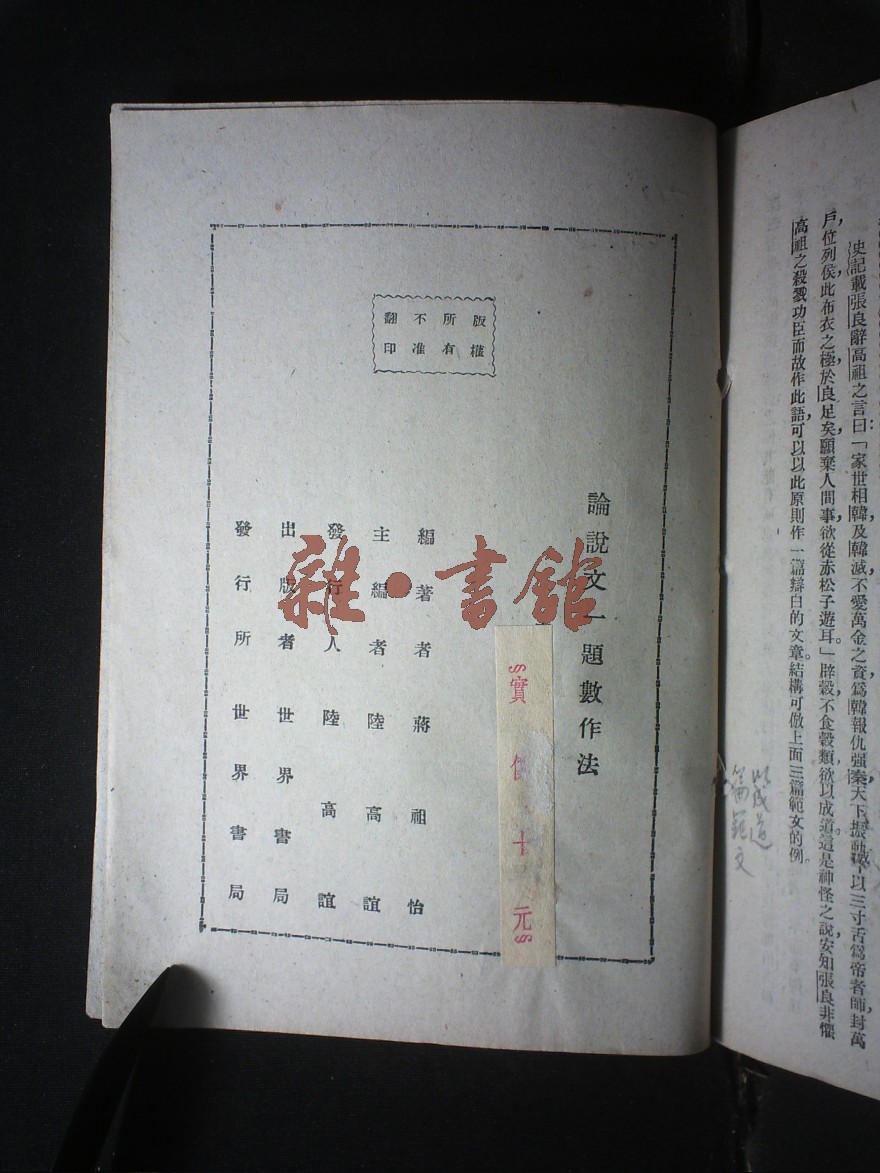 史記載張良辭高祖之言曰：「家世相韓，及韓滅，不愛萬金之資，爲韓報仇强秦，天下振動。以三寸舌爲帝者師，封萬
戶，位列侯，此布衣之極，於良足矣。願棄人間事，欲從赤松子遊耳。」辟穀不食穀類，欲以成道。這是神怪之說，安知張良非懼
高祖之殺戮功臣而故作此語，可以以此原則作一篇辯白的文章。結構可倣上面三篇範文的例。
以成道
篇範文
版權
所有
不准
翻印
論說文一題數作法
§實 十 元§
編著者 蔣祖怡
主編者 陸高誼
發行人 陸高誼
出版者 世界書局
發行所 世界書局
雜·書館